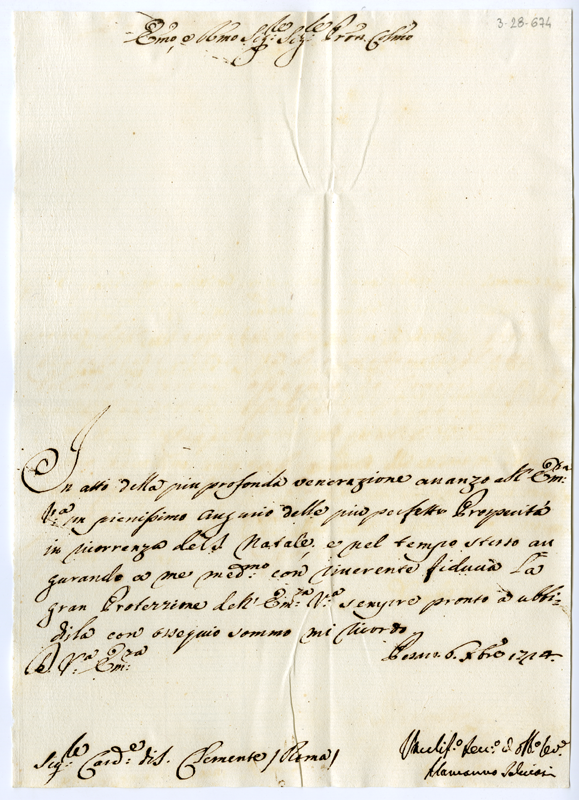 3-28-674
Emo, e Rmo Sig:le Sig:le Pron Colmo
In atto della piu profonda venerazione auanzo all' Em:za
V:ra un pienissimo augurio delle piu perfette Prosperità
in ricorrenza del S. Natale, e nel tempo stesso au
gurando a me med:mo con riuerente fiducia La
gran Protezzione dell' Em:za V:ra sempre pronto a ubbi-
dila con ossequio sommo mi ricordo
D. V:ra Em:za
Pesaro 6. Xbre 1724.
Sig:le Card:e di S. Clemente / Roma /
Vmilis:o Seru:e
Alamanno